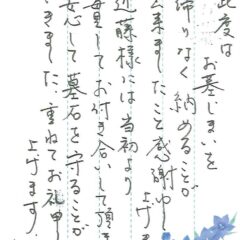 此度は お墓じまいを
滞りなく 納めることが
出来ましたこと感謝申し
上げ
近藤様には 当初より
一貫してお付き合いして頂き
安心して墓石を守ることが
できました 重ねてお礼申し
上げます